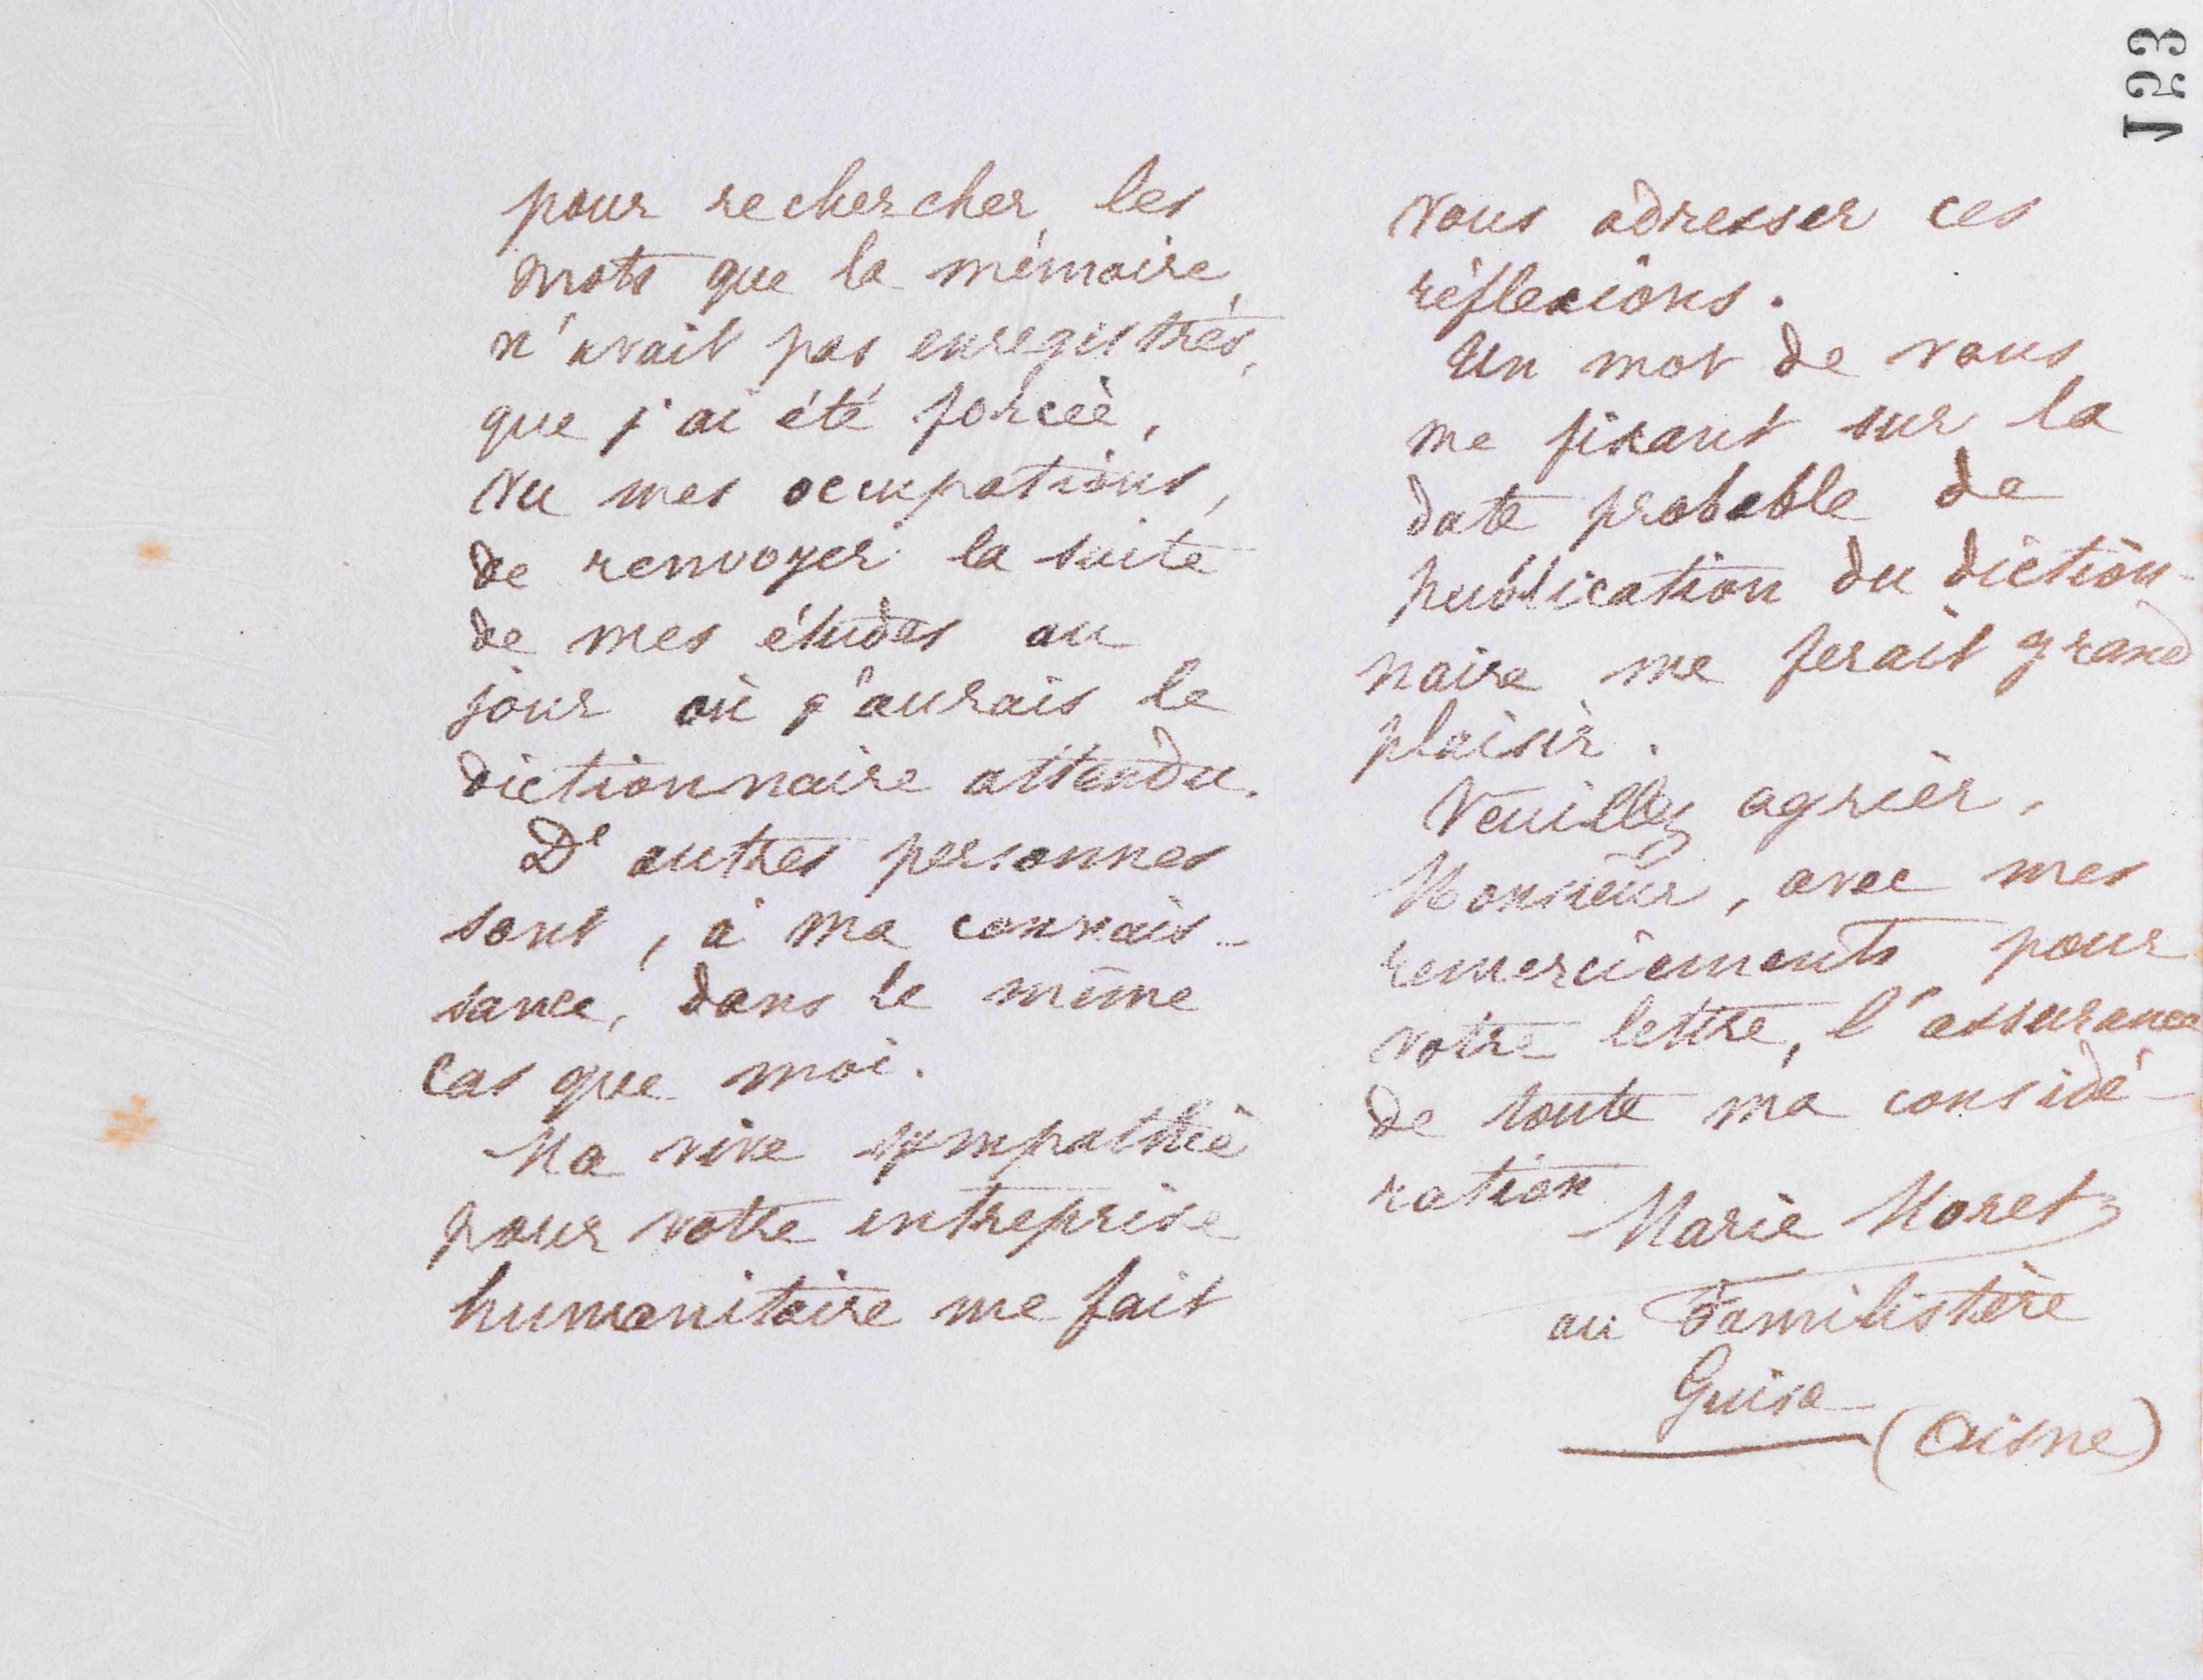 123
pour rechercher les
mots que la mémoire
n'avait pas enregistrés,
que j'ai été forcée,
vu mes occupations,
de renvoyer la suite
de mes études au
jour où j'aurais le
dictionnaire attendu.
D'autres personnes
sont, à ma connais-
sance, dans le même
cas que moi.
Ma vive sympathie
pour votre entreprise
humanitaire me fait
vous adresser ces
réflexions.
Un mot de vous
me fixant sur la
date probable de
publication du diction-
naire me ferait grand
plaisir.
Veuillez agréer,
Monsieur, avec mes
remerciements pour
votre lettre, l'assurance
de toute ma considé-
ration
Marie Moret
au Familistère
Guise
(Aisne)